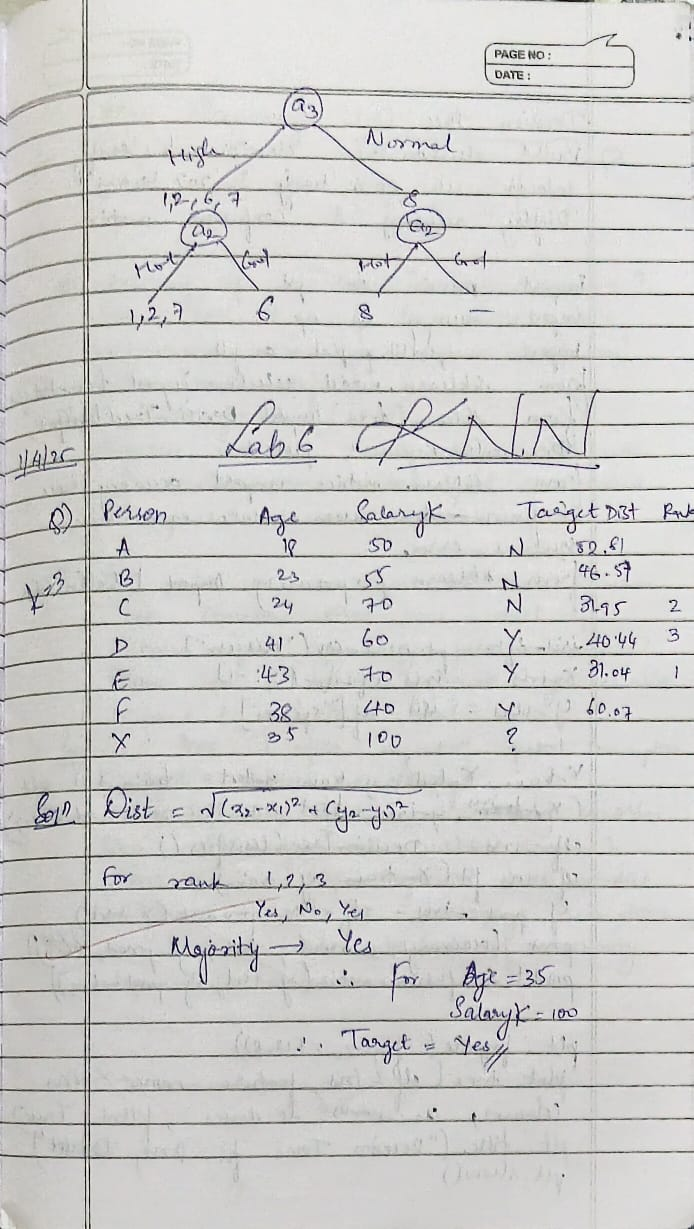 PAGE NO :
DATE :
a3
High Normal
1,2, 6, 7 8
a2 a2
Hot Cool Hot Cool
1,2,7 6 8 —
1/4/25 Lab 6 KNN
Q) Person Age SalaryK Target Dist Rank
A 18 50 N 52.81
k=3 B 23 55 N 46.57
C 24 70 N 31.95 2
D 41 60 Y 40.44 3
E 43 70 Y 31.04 1
F 38 40 Y 60.07
X 35 100 ?
Solⁿ Dist = √(x2-x1)² + (y2-y1)²
For rank 1,2,3
Yes, No, Yes
Majority → Yes
∴ For Age = 35
SalaryK = 100
∴ Target = Yes//